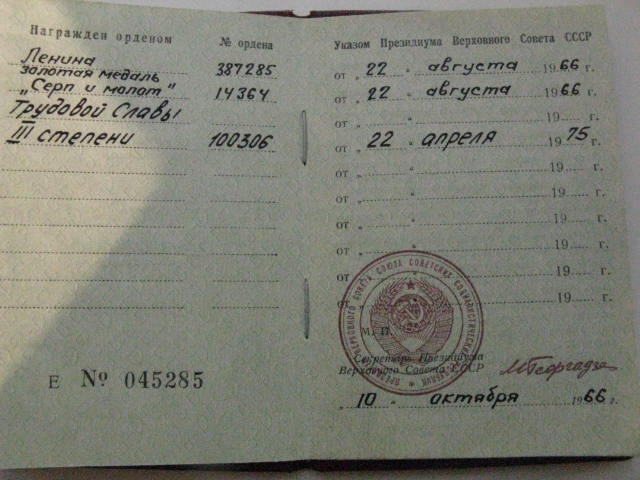 Награжден орденом № ордена
Ленина 387285
золотая медаль
„Серп и молот" 14364
Трудовой Славы
III степени 100306
Е № 045285
Указом Президиума Верховного Совета СССР
от „ 22 " августа 1966 г.
от „ 22 " августа 1966 г.
от „ " 19 г.
от „ 22 " апреля 1975 г.
от „ " 19 г.
от „ " 19 г.
от „ " 19 г.
от „ " 19 г.
от „ " 19 г.
от „ " 19 г.
М. П.
Секретарь Президиума
Верховного Совета СССР
МГеоргадзе
„ 10 " октября 1966 г.
ВЕРХОВНОГО СОВЕТА СОЮЗА СОВЕТСКИХ